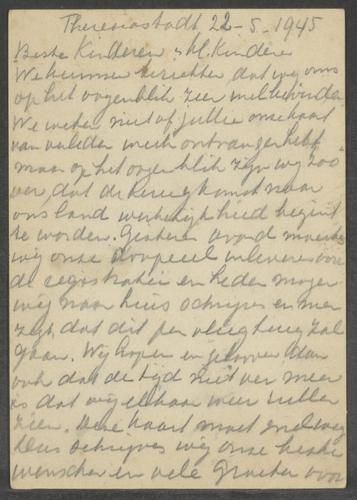 Theresiastadt 22-5. 1945
Beste Kinderen & kl. kinderen
We kunnen berichten dat wij ons
op het oogenblik zeer wel bevinden
We weten niet of jullie onze kaart
van verleden week ontvangen hebt
maar op het oogenblik zijn wij zoo
ver, dat de terugkomst naar
ons land werkelijkheid begint
te worden. Gisteren avond moesten
wij onze inleveren voor
de registratie en heden mogen
wij naar huis schrijven en men
zegt dat dit per vliegtuig zal
gaan. Wij hopen en gelooven dan
ook dat de tijd niet ver meer
is dat wij elkaar weer zullen
zien. Deze kaart moet snel weg
dus schrijven wij onze beste
wenschen en vele groeten voor